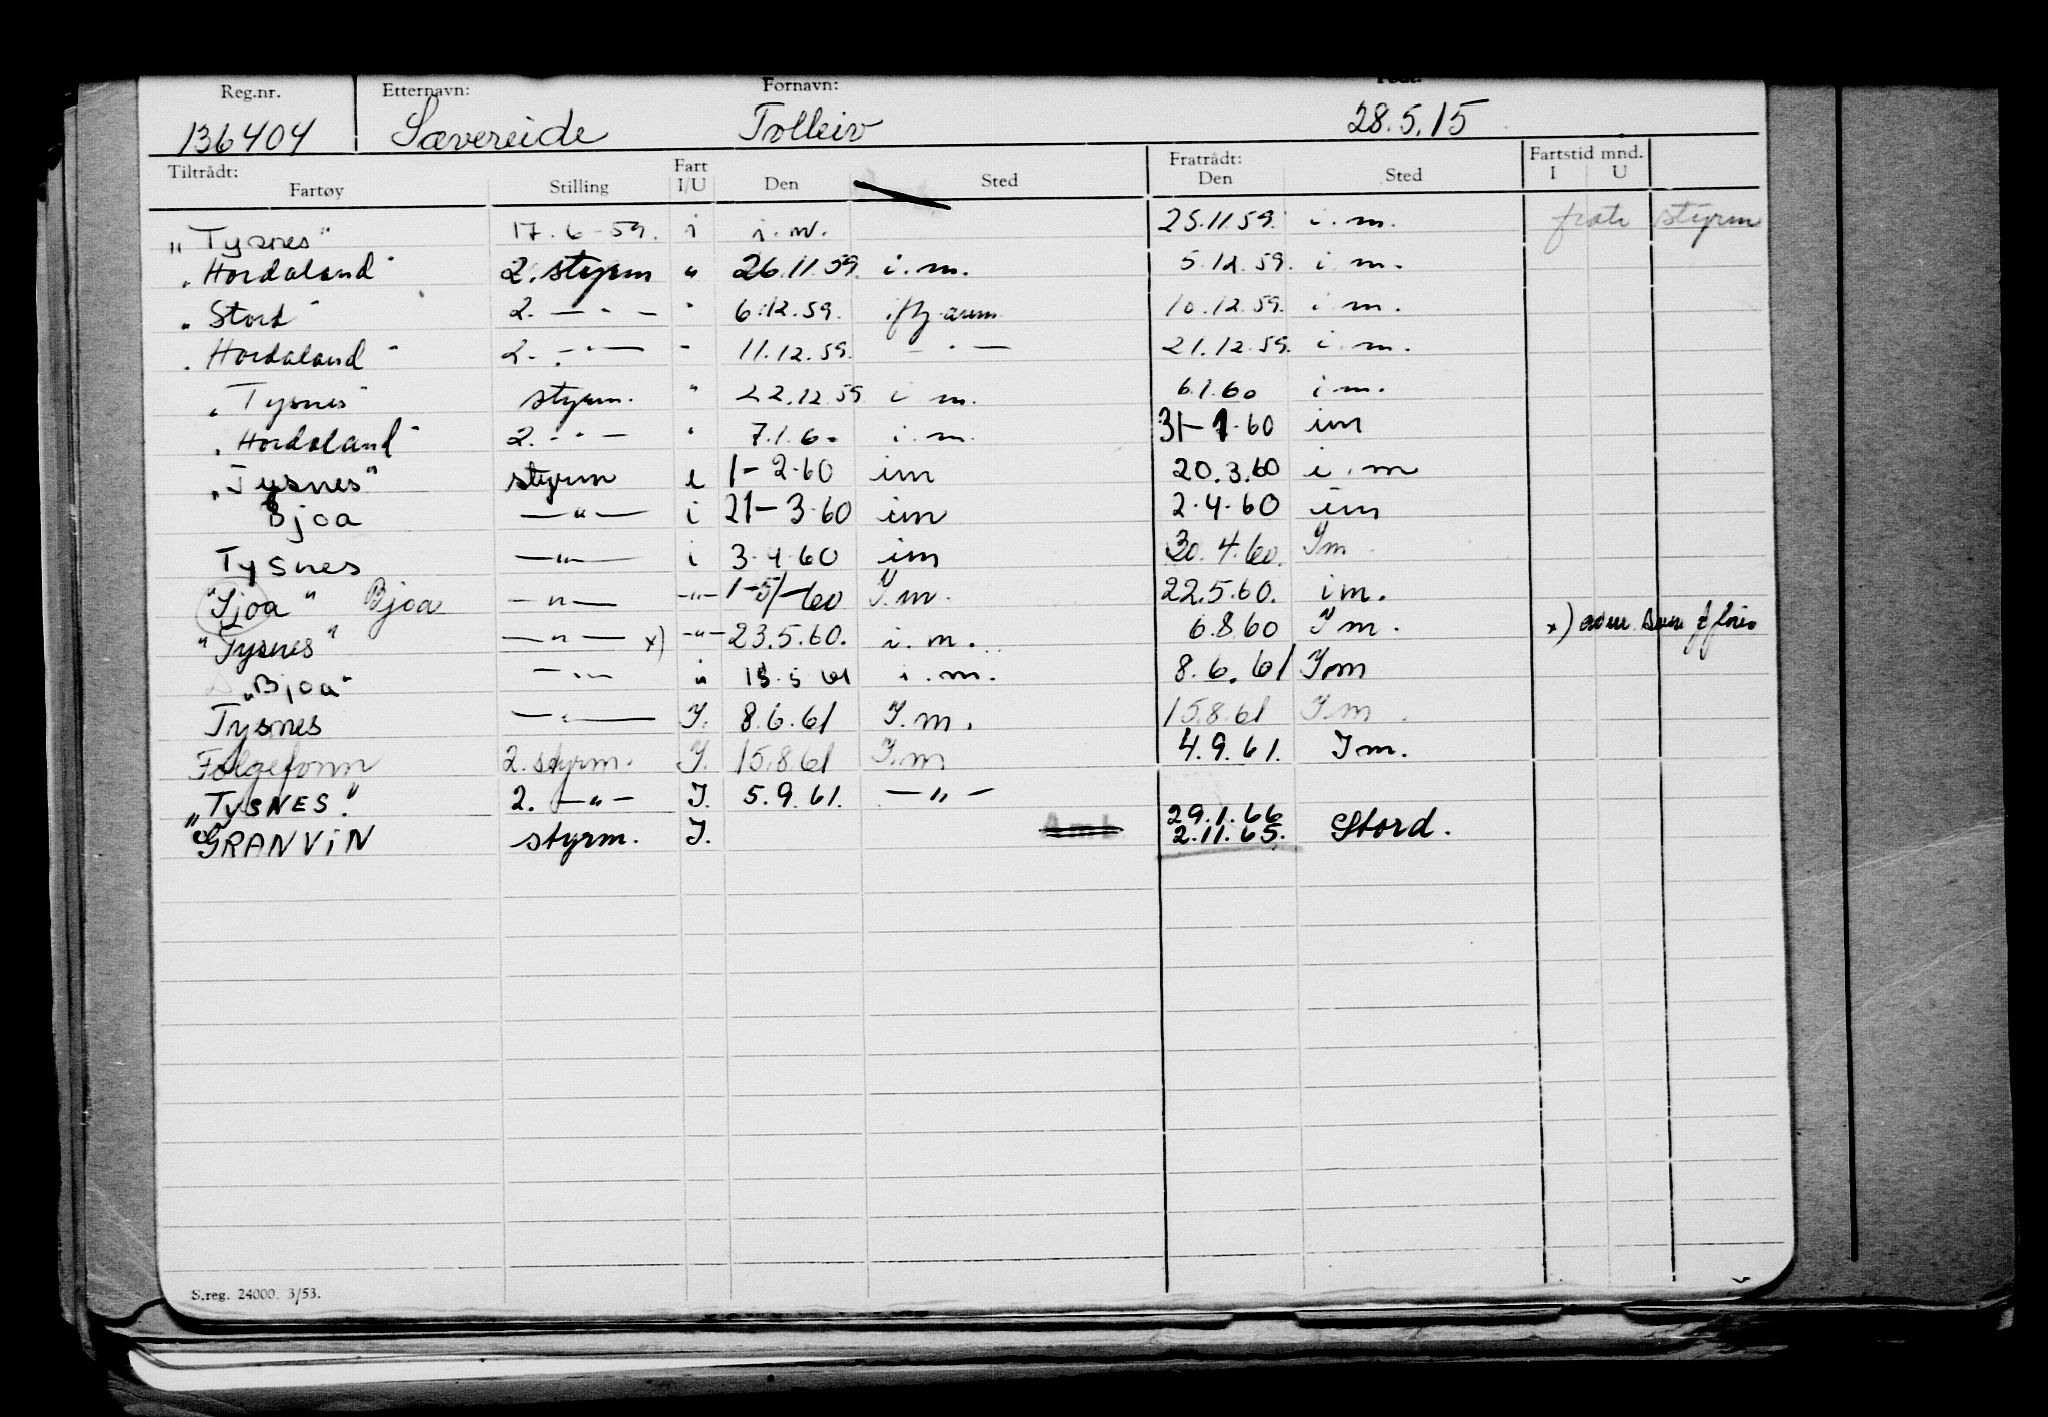 Reg.nr. Etternavn: Fornavn: Født:
136404 Sævereide Tolleiv 28.5.15
Tiltrådt: Fart Fratrådt: Fartstid mnd.
Fartøy Stilling I/U Den Sted Den Sted I U
"Tysnes" 17.6-59. i i.m. 25.11.59. i.m. fratr styrm
"Hordaland" 2. styrm " 26.11.59. i.m. 5.12.59. i.m.
"Stord" 2. — " — " 6.12.59. 10.12.59. i.m.
"Hordaland" 2. — " — " 11.12.59. — " — 21.12.59. i.m.
"Tysnes" styrm. " 22.12.59 i m. 6.1.60 i m.
"Hordaland" 2. - " — " 7.1.60 i.m. 31-1-60 im
"Tysnes" styrm i 1-2-60 im 20.3.60 i.m
Bjoa — " — i 21-3-60 im 2.4.60 im
Tysnes — " — i 3-4-60 im 30.4.60. I m
"Sjoa" Bjoa — " — - " - 1-5-60 I.m. 22.5.60. im.
"Tysnes" — " — x) - " - 23.5.60. i.m. 6.8.60 I m. x) som
"Bjoa" — " — " 13.5 61 i.m. 8.6.61 I m
Tysnes — " — I. 8.6.61 I.m. 15.8.61 I.m.
Folgefonn 2. styrm. I. 15.8.61 I.m 4.9.61. I m.
"TYSNES". 2. — " — I. 5.9.61. — " — 29.1.66
GRANVIN styrm. I. 2.11.65. Stord.
S.reg. 24000. 3/53.